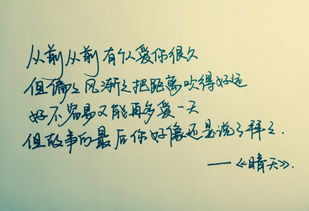 从前从前有个人爱你很久
但偏偏风渐渐把距离吹得好远
好不容易又能再多爱一天
但故事的最后你好像还是说了拜拜.
——《晴天》.